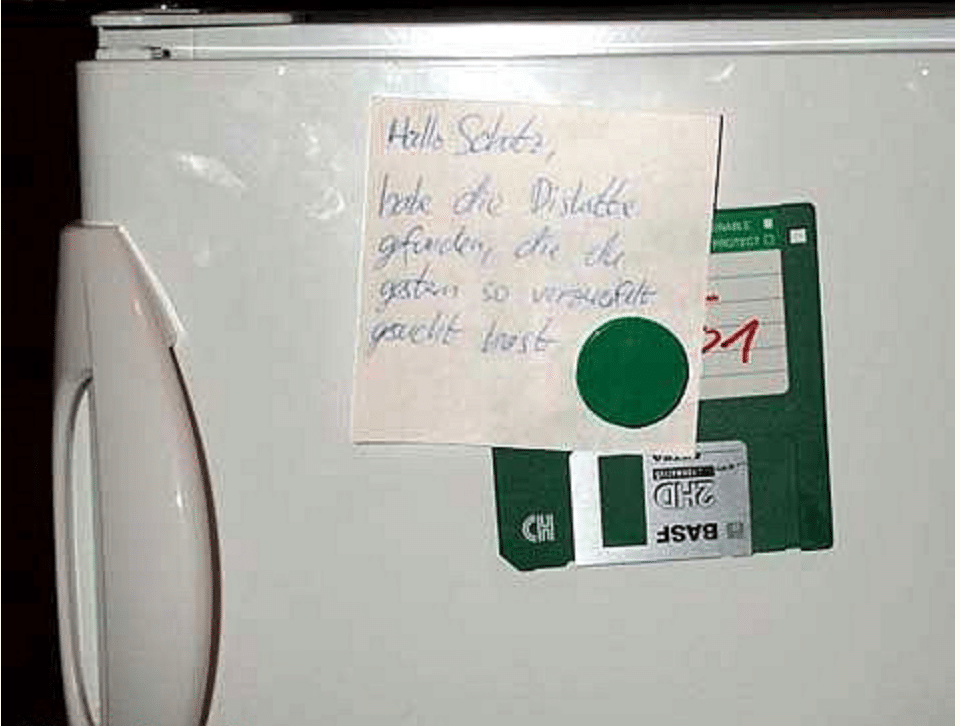 Hallo Schatz,
habe die Diskette
gefunden, die du
gestern so verzweifelt
gesucht hast
PROTECT
21
HD
2HD
BASF